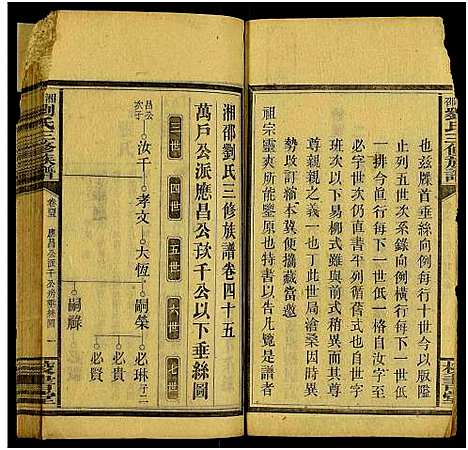 邵劉氏三修族譜
也茲牒首垂絲向例每行十世今以版隘
止列五世次系錄向例橫行每下一世低
一排今直行每下一世低一格自汝字至
必字仍酌直書半列循舊式也自世字
班次以下易柳式雖與前式稍異而其尊
尊親親之義一也丁此世局滄桑因時異
勢改訂縮本冀便攜藏當邀
祖宗靈爽所能鑒原也特書以告凡覽是譜者
湘邵劉氏三修族譜卷四十五
萬戶公派應昌公玫千公以下垂絲圖
三世 四世 五世 六世 七世
昌公次子 汝千 孝文 大恆 嗣榮 必琳 子二
必貴
必賢
嗣祿
湘劉氏三修族譜
應昌公派千公房垂絲圖 一